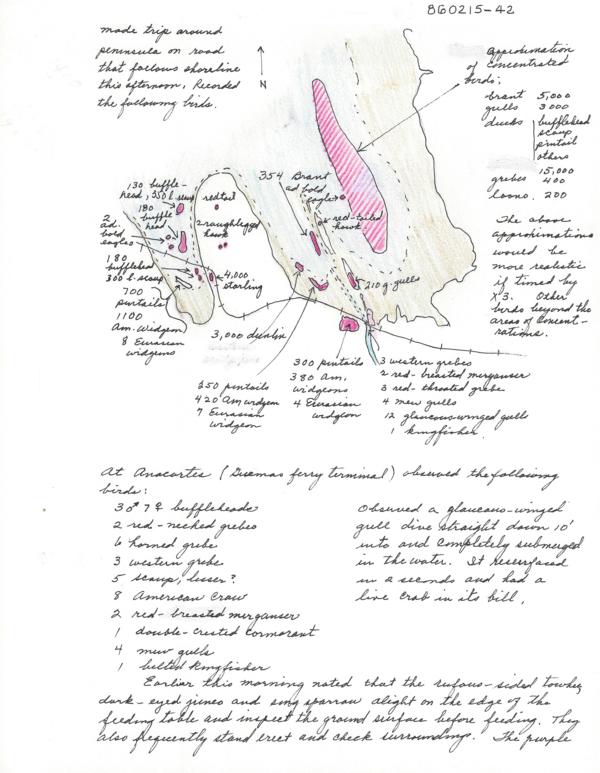 860215-42
made trip around
peninsula on road
that follows shoreline
this afternoon, Recorded
the following birds.
N
Approximation
of concentrated
birds:
brant 5,000
gulls 3000
ducks
bufflehead
scaup
pintail
others
15,000
grebes 400
loons. 200
The above
approximations
would be
more realistic
if timed by
X 3. Other
birds beyond the
areas of concent-
rations.
354 Brant
ad bald
eagle
red-tailed
hawk
210 g. gulls
130 buffle-
head, 350 l. scaup
180
buffle
head
2
ad.
bald
eagles
180
bufflehead
300 l. scaup
700
pintails
1100
Am. Widgeon
8 Eurasian
widgeons
redtail
2 roughlegged
hawk
4,000
starling
3,000 dunlin
250 pintails
420 Am widgeon
7 Eurasian
widgeon
300 pintails
380 Am.
widgeons
4 Eurasian
widgeon
3 western grebes
2 red-breasted merganser
3 red-throated grebe
4 mew gulls
12 glaucous-winged gulls
1 kingfisher.
At Anacortes (Guemas ferry terminal) observed the following
birds:
3♂ 7♀ buffleheads
2 red-necked grebes
6 horned grebe
3 western grebe
5 scaup, lesser?
8 American Crow
2 red-breasted merganser
1 double-crested cormorant
4 mew gulls
1 belted kingfisher
Observed a glaucous-winged
gull dive straight down 10'
into and completely submerged
in the water. It resurfased
in a seconds and had a
live crab in its bill.
Earlier this morning noted that the rufous-sided towhee,
dark-eyed junco and song sparrow alight on the edge of the
feeding table and inspect the ground surface before feeding. They
also frequently stand erect and check surroundings. The purple